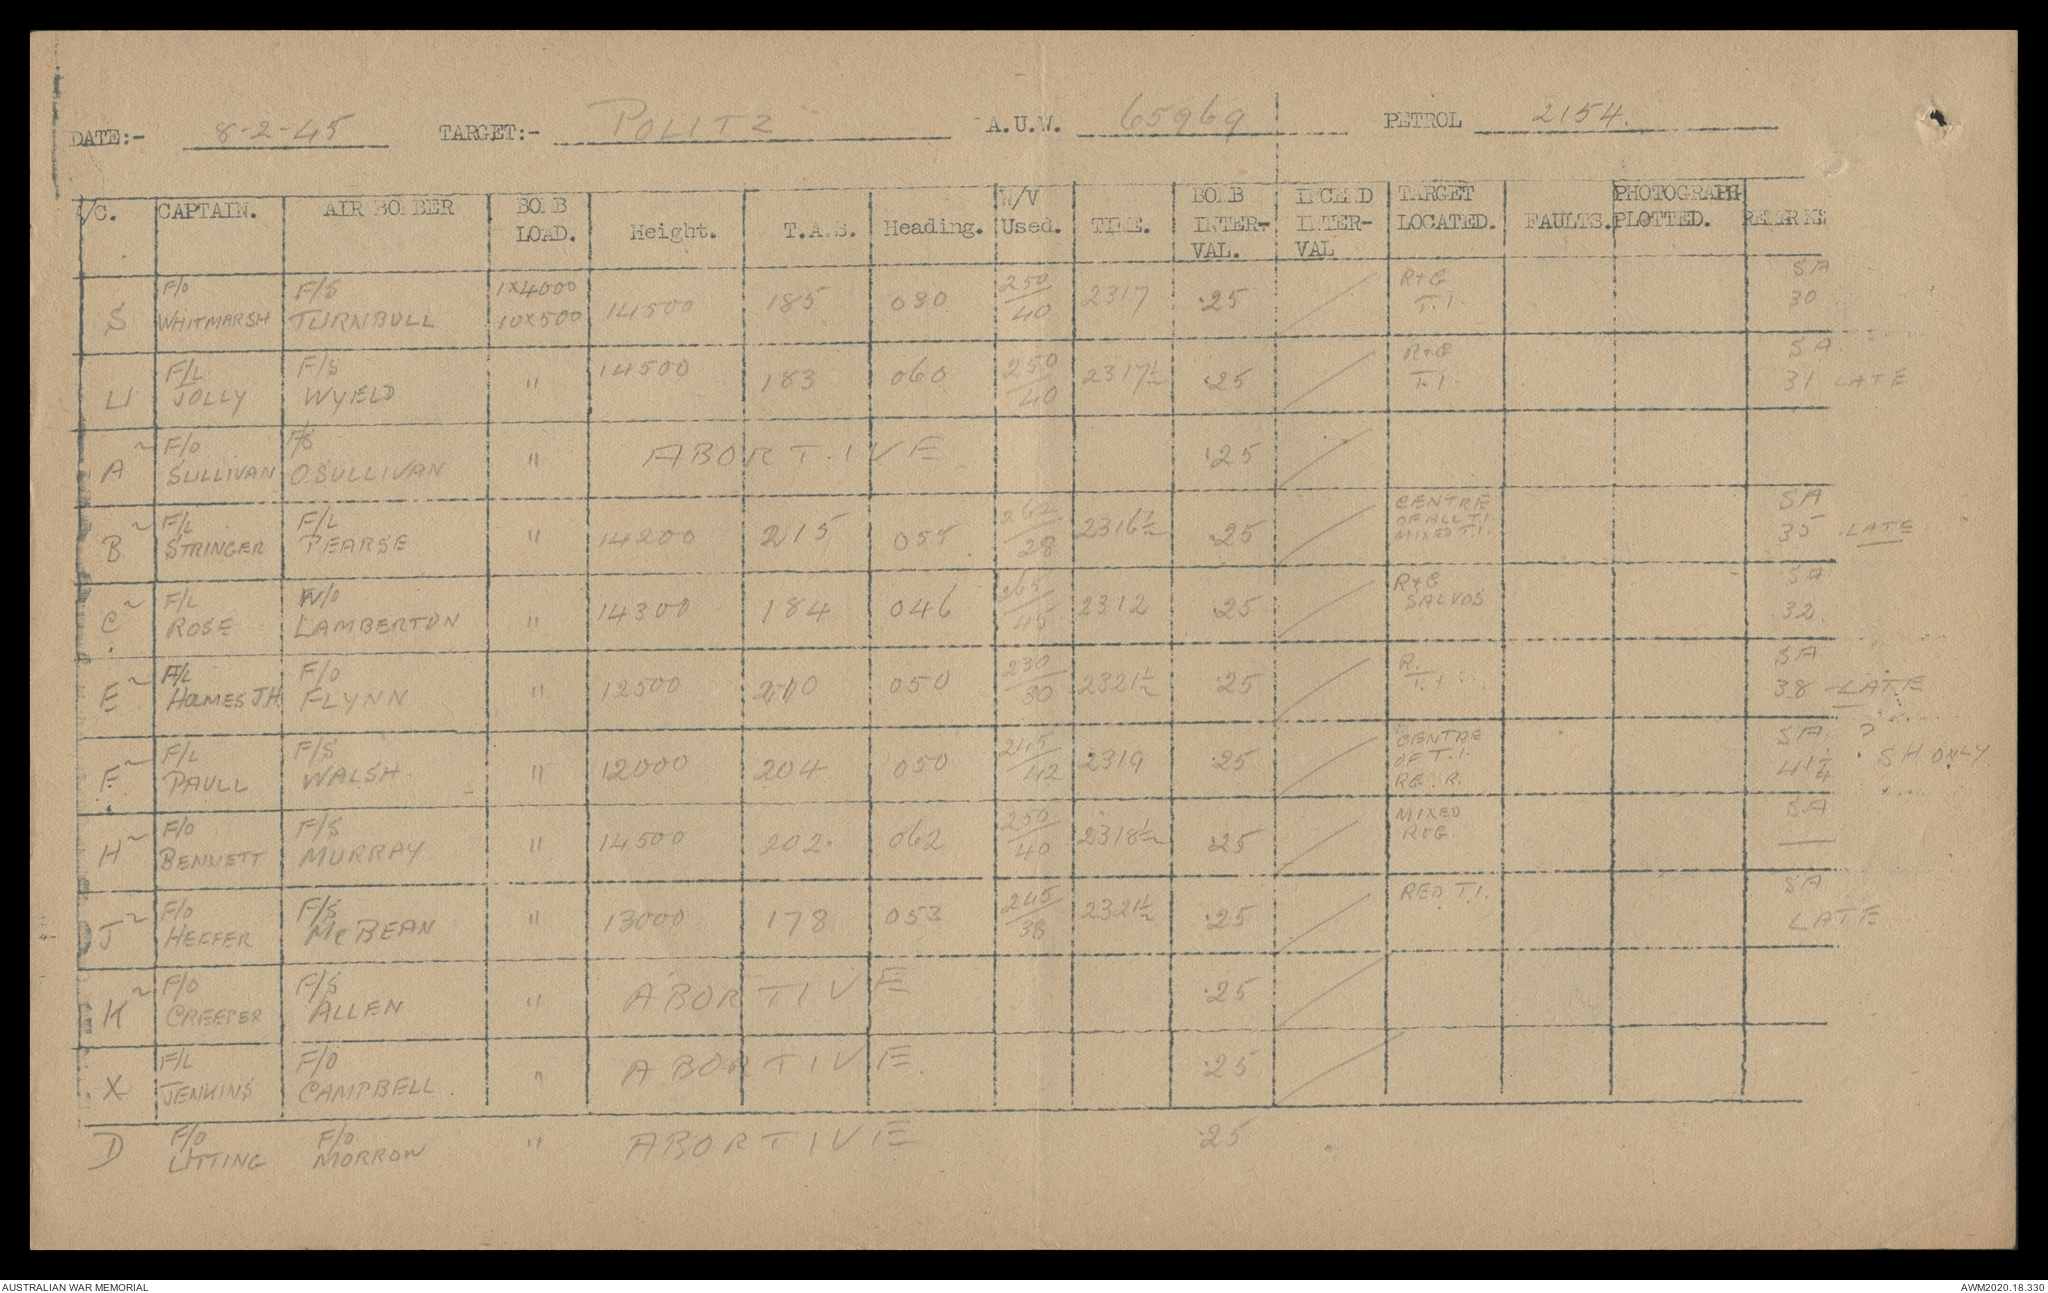 DATE:- 8-2-45 TARGET:- POLITZ A.U.W. 65969 PETROL 2154.
/C. CAPTAIN. AIR BOMBER BOMB LOAD. Height. T.A.S. Heading. W/V Used. TIME. BOMB INTER-VAL. INCEND INTER-VAL TARGET LOCATED. FAULTS. PHOTOGRAPH PLOTTED. REMARKS
S F/O WHITMARSH F/S TURNBULL 1x4000 10x500 14500 185 080 250/40 2317 .25 R+G T.I. SA 30
U F/L JOLLY F/S WYELD " 14500 183 060 250/40 2317½ .25 R+G T.I. SA 31 LATE
A~ F/O SULLIVAN F/S OSULLIVAN " ABORTIVE .25
B~ F/L STRINGER F/L PEARSE " 14200 215 055 262/28 2316½ .25 CENTRE OF ALL T.I. MIXED T.I. SA 35 LATE
C~ F/L ROSE W/O LAMBERTON " 14300 184 046 265/45 2312 .25 R+G SALVOS SA 32
E~ F/L HOLMES J.H. F/O FLYNN " 12500 210 050 230/30 2321½ .25 R. T.I. SA 38 - LATE
F~ F/L PAULL F/S WALSH " 12000 204 050 245/42 2319 .25 CENTRE OF T.I. RG. R. SA ? 41¼ SH ONLY
H~ F/O BENNETT F/S MURRAY " 14500 202 062 250/40 2318½ .25 MIXED R+G. SA —
J~ F/O HEFFER F/S McBEAN " 13000 178 053 245/38 2321½ .25 RED T.I. SA LATE
K~ F/O CREEPER F/S ALLEN " ABORTIVE .25
X F/L JENKINS F/O CAMPBELL " ABORTIVE .25
D F/O LITTING F/O MORROW " ABORTIVE .25
AUSTRALIAN WAR MEMORIAL AWM2020.18.330